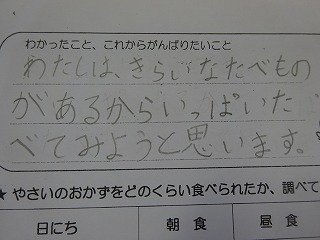 わかったこと、これからがんばりたいこと
わたしは、きらいなたべもの
があるからいっぱいた
べてみようと思います。
★ やさいのおかずをどのくらい食べられたか、調べて
日にち 朝食 昼食